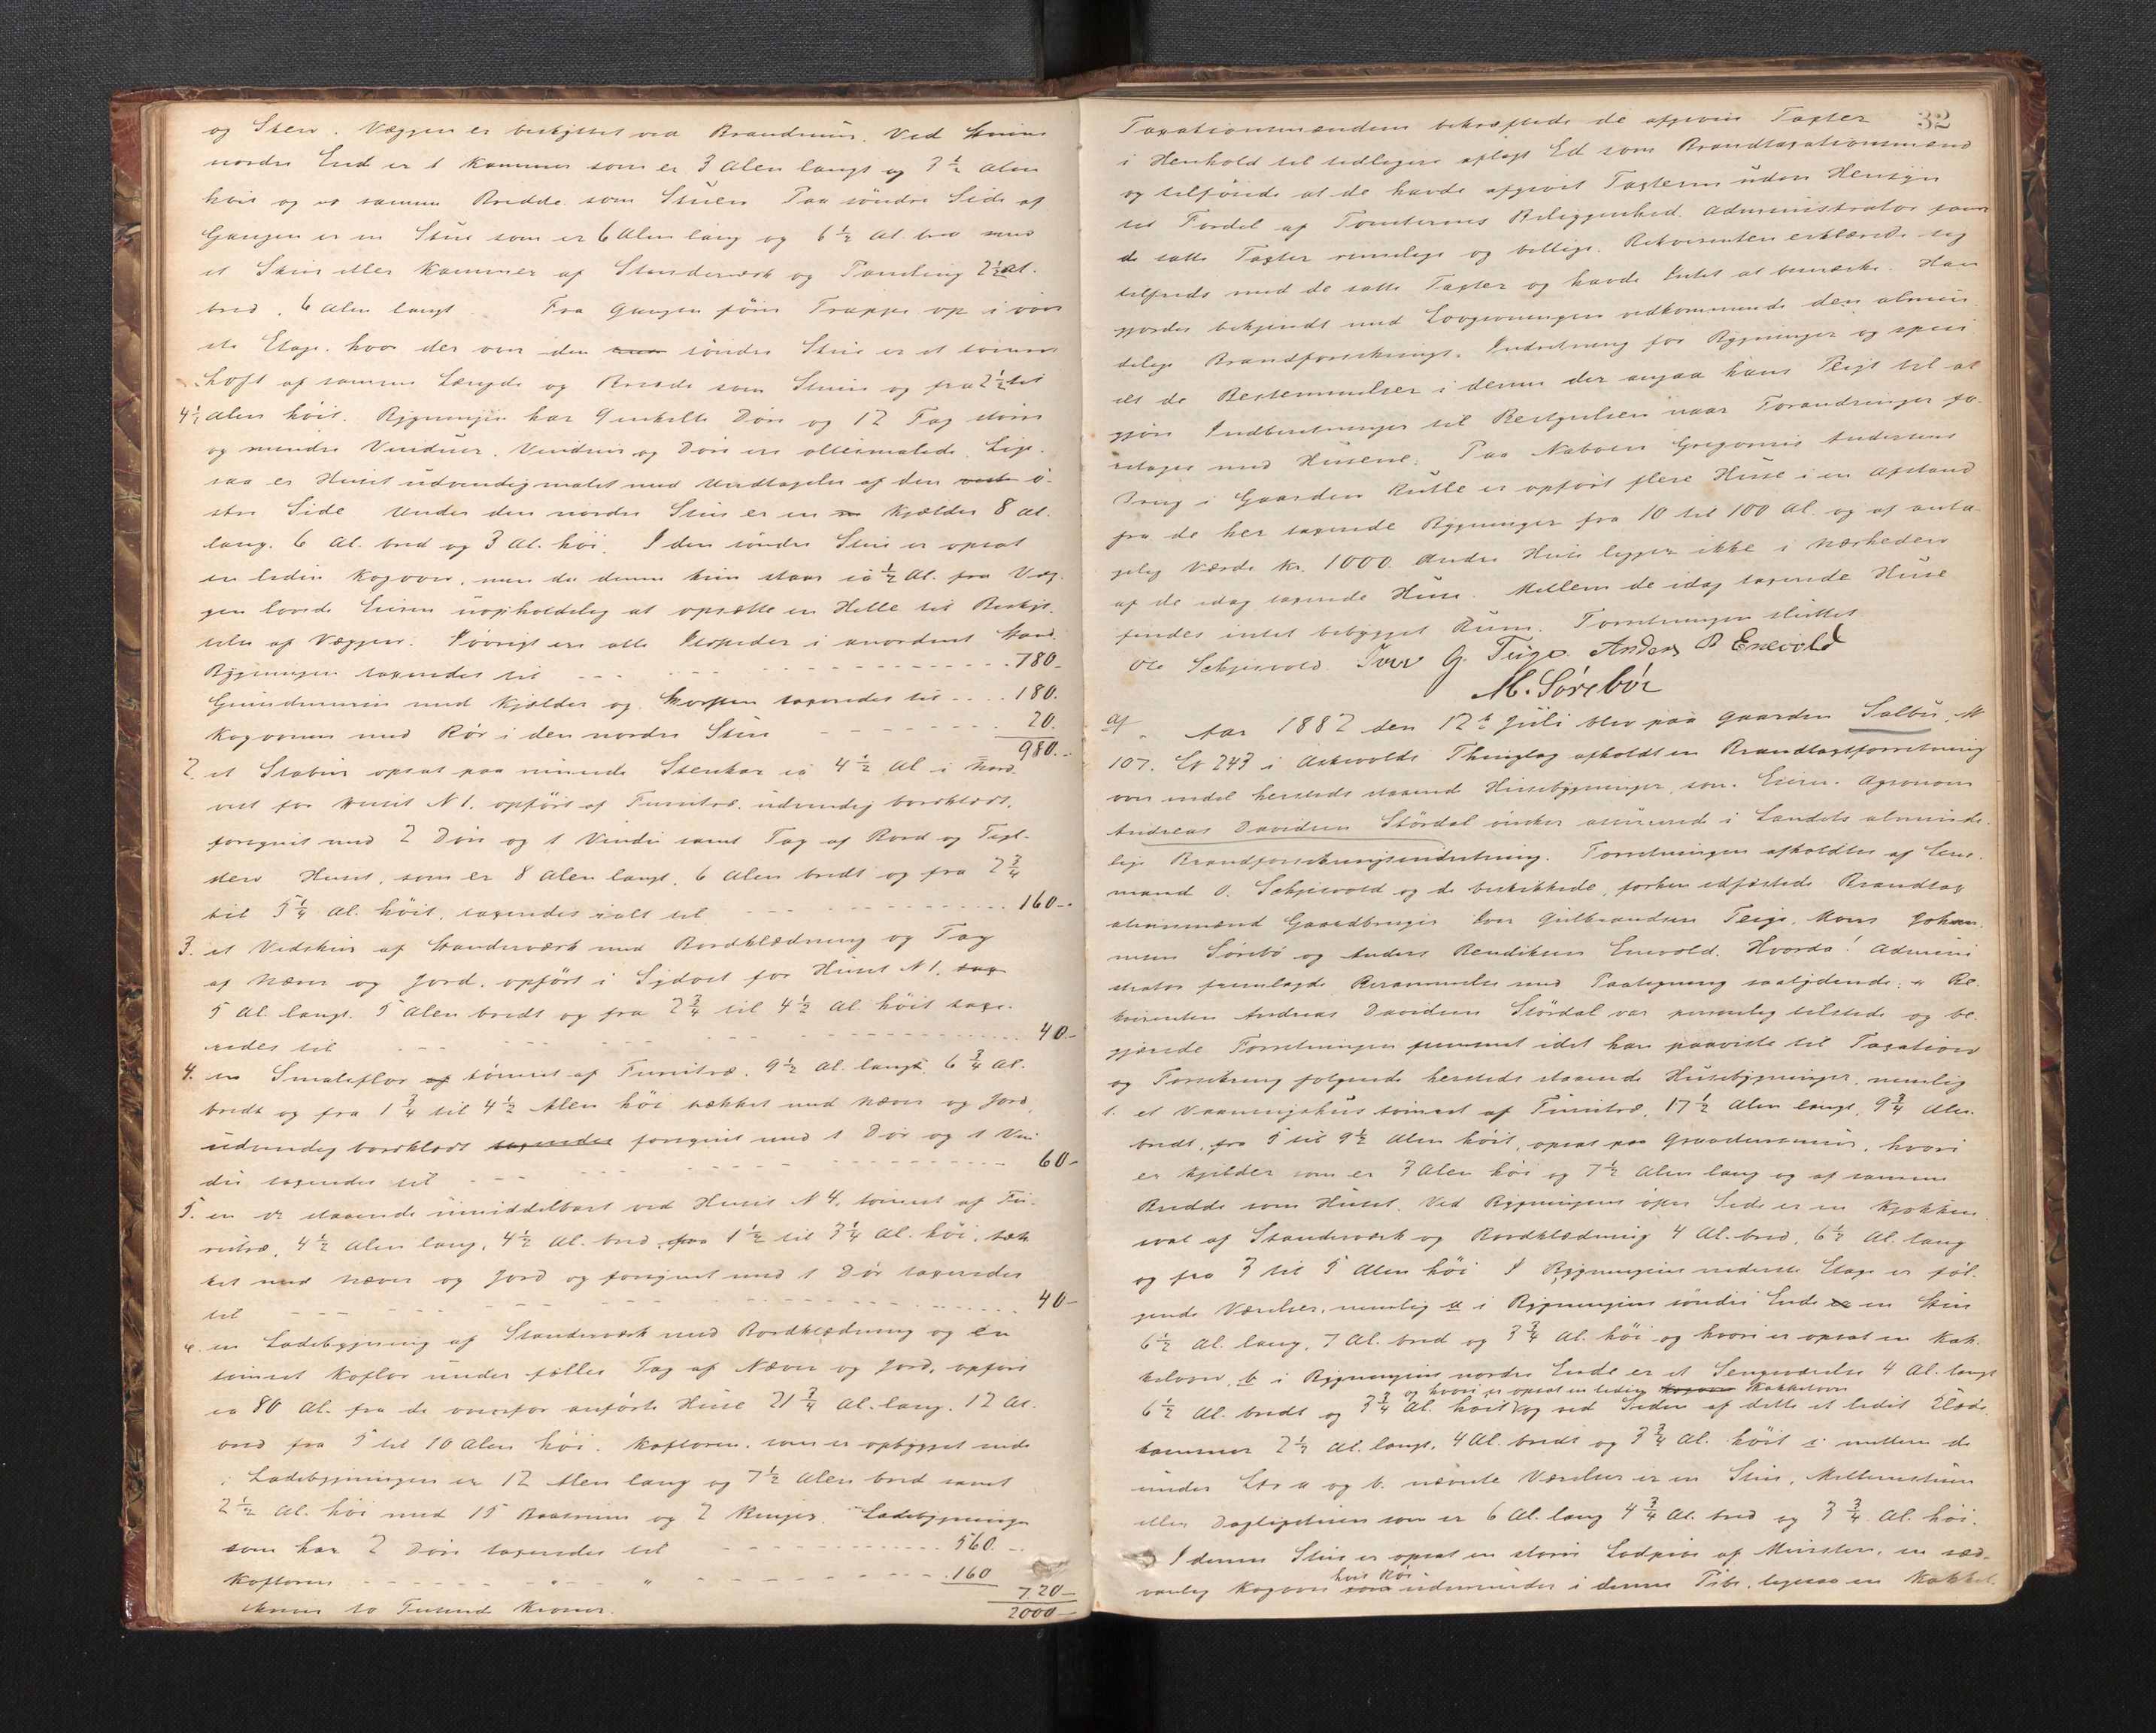 og Steen. Væggen er beskyttet ved Brandmuur. Ved Stuens
nordre Ende er 1 Kammer som er 3 Alen langt og 3 1/2 Alen
høit og af samme Bredde som Stuen. Paa søndre Side af
Gangen er en Stue som er 6 Alen lang og 6 1/2 Al. bred med
et Skur eller Kammer af Standerværk og Panling 2 1/2 Al.
bred, 6 Alen langt. Fra Gangen fører Trappe op i øver
ste Etage, hvor der over den søndre Stue er et tømret
Loft af samme Længde og Bredde som Stuen og fra 2 1/2 til
4 1/2 Alen høit. Bygningen har 9 enkelte Døre og 12 Fag større
og mindre Vinduer. Vinduer og Døre ere oliemalede. Lige-
saa er Huset udvendig malet med Undtagelse af den vest ø-
stre Side. Under den nordre Stue er en Kjælder 8 Al.
lang, 6 Al. bred og 3 Al. høi. I den søndre Stue er opsat
en liden Kogovn, men da denne kun staar ca 1/2 Al. fra Væg-
gen lovede Eieren uopholdelig at opsætte en Helle til Beskyt-
telse af Væggen. Iøvrigt ere alle Ildsteder i anordnet Stand.
Bygningen taxeredes til 780-
Grundmuren med Kjælder og Skorsten taxeredes til 180.
Kogovnen med Rør i den nordre Stue 20.
980.-
2. et Stabur opsat paa murede Stenkar ca 4 1/2 Al. i Nord-
vest for Huset N 1, opført af Furutræ, udvendig bordklædt,
forsynet med 2 Døre og 1 Vindu samt Tag af Bord og Tegl-
sten. Huset, som er 8 Alen langt, 6 Alen bredt og fra 2 3/4
til 5 1/4 Al. høit, taxeredes ialt til 160-
3. et Vedskur af Standerværk med Bordklædning og Tag
af Næver og Jord, opført i Sydost for Huset N 1, tax
5 Al. langt, 5 Alen bredt og fra 2 3/4 til 4 1/2 Al. høit taxe-
redes til 40-
4. en Smaleflor af tømret af Furutræ, 9 1/2 Al. langt, 6 3/4 Al.
bredt og fra 1 3/4 til 4 1/2 Alen høi tækket med Næver og Jord,
udvendig bordklædt taxeredes forsynet med 1 Dør og 1 Vin
du taxeredes til 60-
5. en do staaende umiddelbart ved Huset N 4, tømret af Fu-
rutræ, 4 1/2 Alen lang, 4 1/2 Al. bred, fra 1 1/2 til 3 1/4 Al. høi, tæk
ket med Næver og Jord og forsynet med 1 Dør taxeredes
til 40-
6. en Ladebygning af Standerværk med Bordklædning og en
tømret Koflor under fælles Tag af Næver og Jord, opført
ca 80 Al. fra de ovenfor anførte Huse 21 3/4 Al. lang, 12 Al.
bred fra 5 til 10 Alen høi. Kofloren, som er opbygget inde
i Ladebygningen er 12 Alen lang og 7 1/2 Alen bred samt
2 1/2 Al. høi med 15 Baaserum og 2 Binger. Ladebygningen
som har 2 Døre taxeredes til 560.-
Kofloren " " 160
720-
Kroner to Tusende Kroner. 2000-
32
Taxationsmændene bekræftede de afgivne Taxter
i Henhold til tidligere aflagt Ed som Brandtaxationsmænd
og tilføiede at de havde afgivet Taxterne uden Hensyn
til Fordel af Tomternes Beliggenhed. Administrator fandt
de satte Taxter rimelige og billige. Rekvirenten erklærede sig
tilfreds med de satte Taxter og havde Intet at bemærke. Han
gjordes bekjendt med Lovgivningen vedkommende den almin
delige Brandforsikrings-Indretning for Bygninger og speci
elt de Bestemmelser i denne der angaa hans Pligt til at
gjøre Indberetninger til Bestyrelsen naar Forandringer fo-
retages med Husene. Paa Naboen Gregorius Andersens
Brug i Gaarden Kulle er opført flere Huse i en Afstand
fra de her taxerede Bygninger fra 10 til 100 Al. og af anta-
gelig Værdi Kr. 1000. Andre Huse ligger ikke i Nærheden
af de idag taxerede Huse. Mellem de idag taxerede Huse
findes intet bebygget Rum. Forretningen sluttet.
Ole Schjersvold. Iver G. Teige Anders B Enevold
M. Sørebør
Aar 1882 den 12te Juli blev paa Gaarden Salbu, M
107. Lb 243 i Askevolds Thinglag afholdt en Brandtaxtforretning
over endel hersteds staaende Husebygninger, som Eieren Agronom
Andreas Davidsen Stördal ønsker assureret i Landets alminde-
lige Brandforsikringsindretning. Forretningen afholdtes af Lens-
mand O. Schjersvold og de beskikkede, forhen edfæstede Brandtax
ationsmænd Gaardbruger Iver Gulbrandsen Teige, Mons Johan-
nesen Sørebø og Anders Bendiksen Enevold. Hvorda! Admini
strator fremlagde Berammelse med Paategning saalydende: " Re-
kvirenten Andreas Davidsen Stördal var personlig tilstede og be-
gjærede Forretningen fremmet idet han paaviste til Taxation
og Forsikring følgende hersteds staaende Husebygninger, nemlig
1. et Vaaningshus tømret af Furutræ, 17 1/2 Alen langt, 9 3/4 Alen
bredt, fra 5 til 9 1/2 Alen høit, opsat paa Graastensmuur, hvori
er Kjelder som er 3 Alen høi og 7 1/2 Alen lang og af samme
Bredde som Huset. Ved Bygningens østre Side er en Kjøkken
sval af Standerværk og Bordklædning 4 Al. bred, 6 1/2 Al. lang
og fra 3 til 5 Alen høi. I Bygningens nederste Etage er føl-
gende Værelser, nemlig a i Bygningens søndre Ende er en Stue
6 1/2 Al. lang, 7 Al. bred og 3 3/4 Al. høi og hvori er opsat en Kak-
kelovn, b i Bygningens nordre Ende er et Sengeværelse 4 Al. langt
og hvori er opsat en liden Kogovn Kakkelovn
6 1/2 Al. bredt og 3 3/4 Al. høit og ved Siden af dette et lidet Klæde
kammer 2 1/2 Al. langt, 4 Al. bredt og 3 3/4 Al. høit c mellem de
under Ltr a og b. nævnte Værelser er en Stue, Mellemstuen
eller Dagligstuen som er 6 Al. lang 4 3/4 Al. bred og 3 3/4 Al. høi.
I denne Stue er opsat en større Lodpibe af Mursten, en sæd-
hvis Rør
vanlig Kogovn som udmunder i denne Pibe, ligesaa en Kakkel-